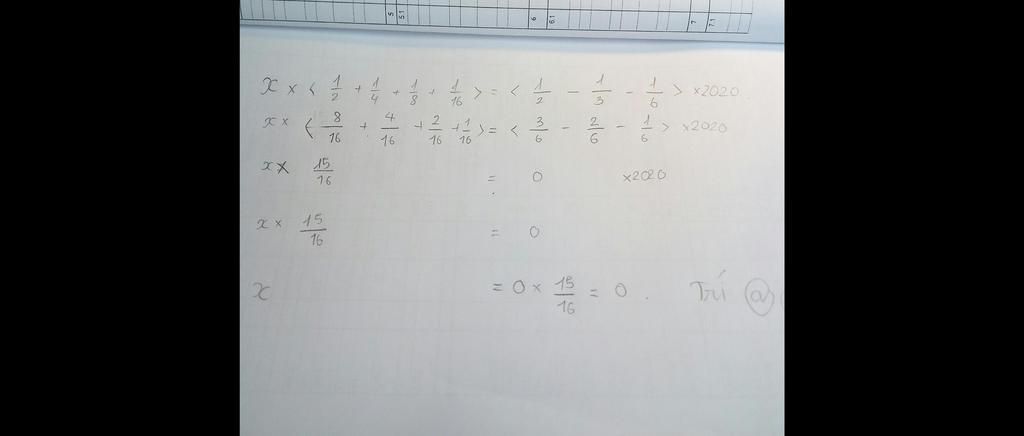 5 5.1 6 6.1 7 7.1
x × < 1/2 + 1/4 + 1/8 + 1/16 > = < 1/2 - 1/3 - 1/6 > ×2020
x × < 8/16 + 4/16 + 2/16 + 1/16 > = < 3/6 - 2/6 - 1/6 > ×2020
x × 15/16 = 0 ×2020
x × 15/16 = 0
x = 0 × 15/16 = 0 . Trí @